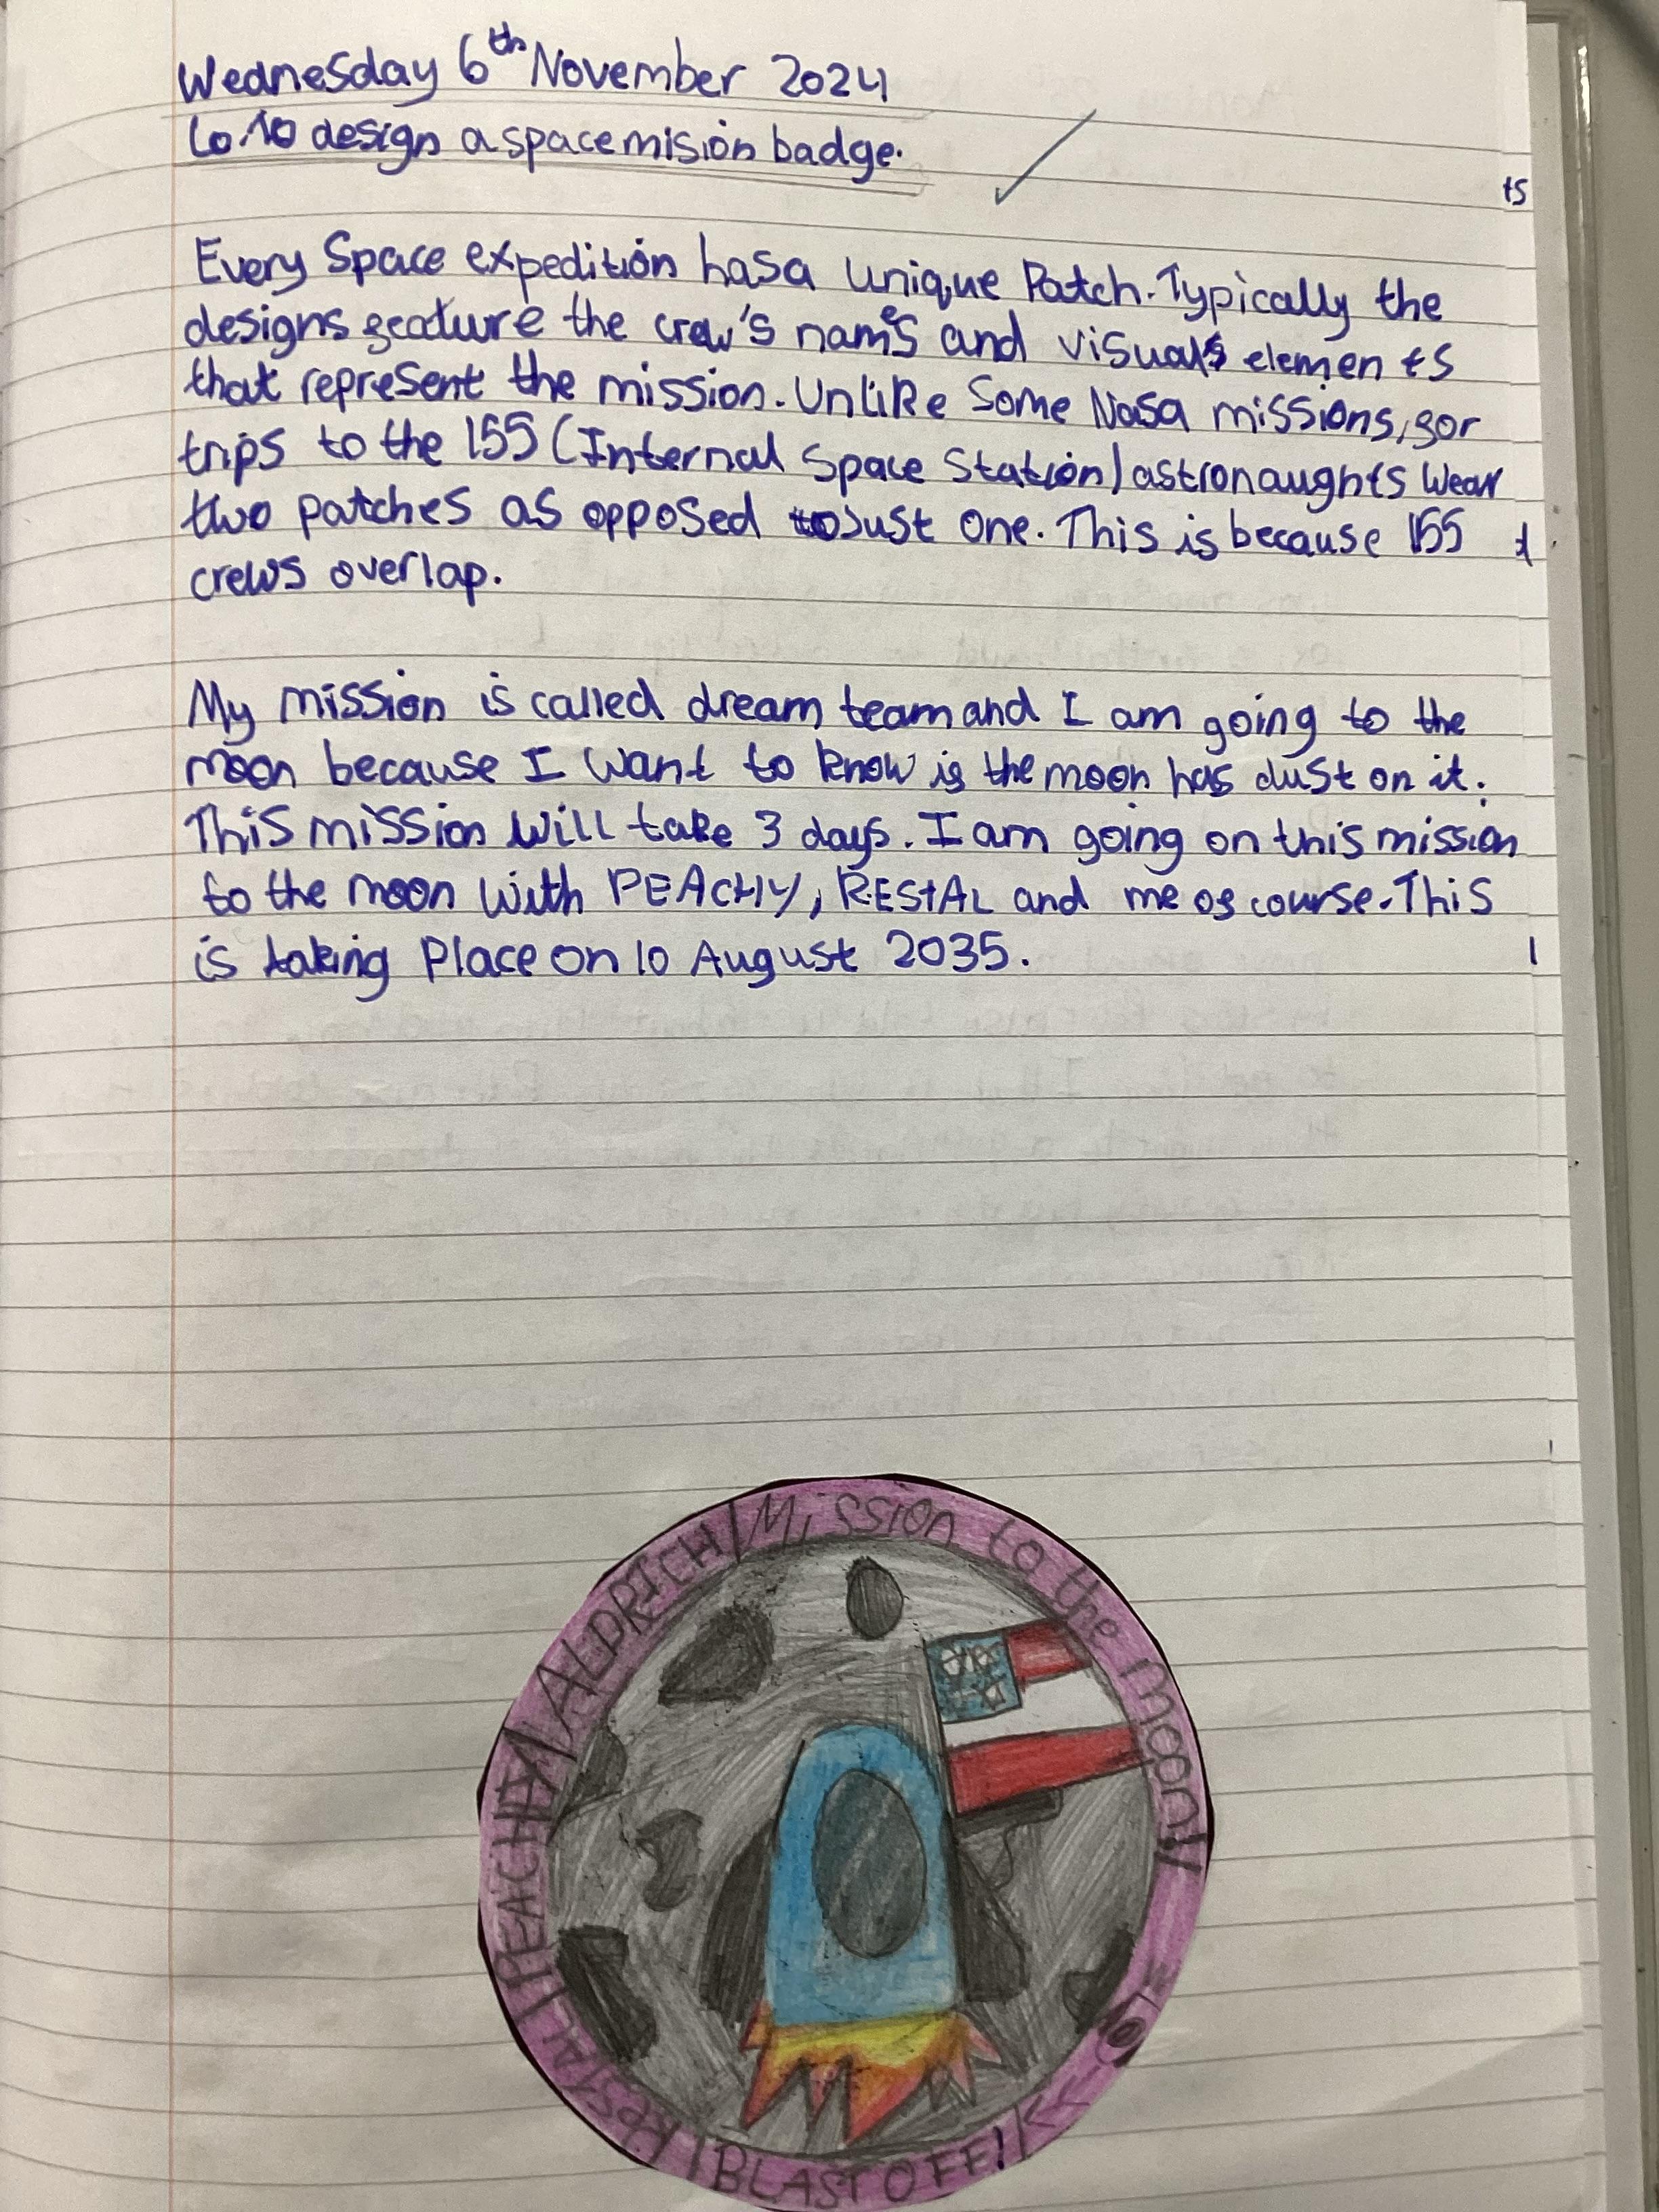 Wednesday 6th November 2024
Lo To design a space mision badge.
Every Space expedition has a unique Patch. Typically the
designs feature the crew's names and visual elements
that represent the mission. Unlike Some Nasa missions, for
trips to the ISS (Internal Space Station) astronaughts wear
two patches as opposed to Just one. This is because ISS
crews overlap.
My mission is called dream team and I am going to the
moon because I want to know if the moon has dust on it.
This mission will take 3 days. I am going on this mission
to the moon with PEACHY, RESTAL and me of course. This
is taking Place on 10 August 2035.
Mission to the moon!
ALDRICH
PEACHY
RESTAL
BLAST OFF!